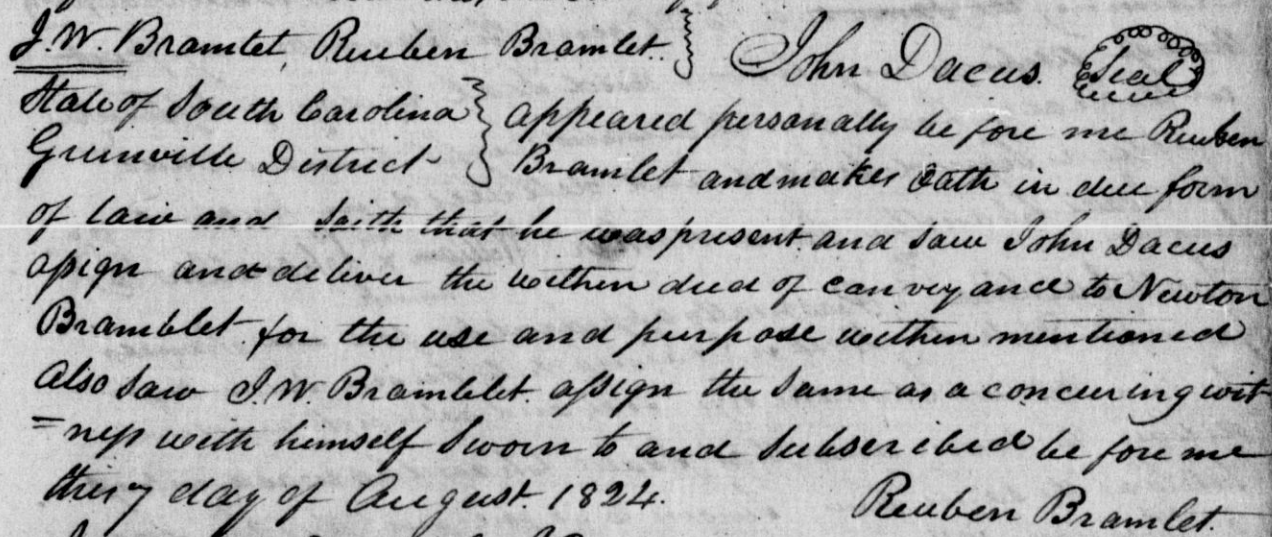 J.W. Bramlet, Reuben Bramlet. John Dacus. Seal
State of South Carolina appeared personally be fore me Reuben
Grunville District Bramlet and makes Oath in due form
of law and saith that he was present and saw John Dacus
assign and deliver the within deed of conveyance to Newton
Bramblet for the use and purpose within mentioned
also saw J.W. Bramblet assign the same as a concuring wit
=ness with himself Sworn to and Subscribed be fore me
this 7 day of August. 1824. Reuben Bramlet.